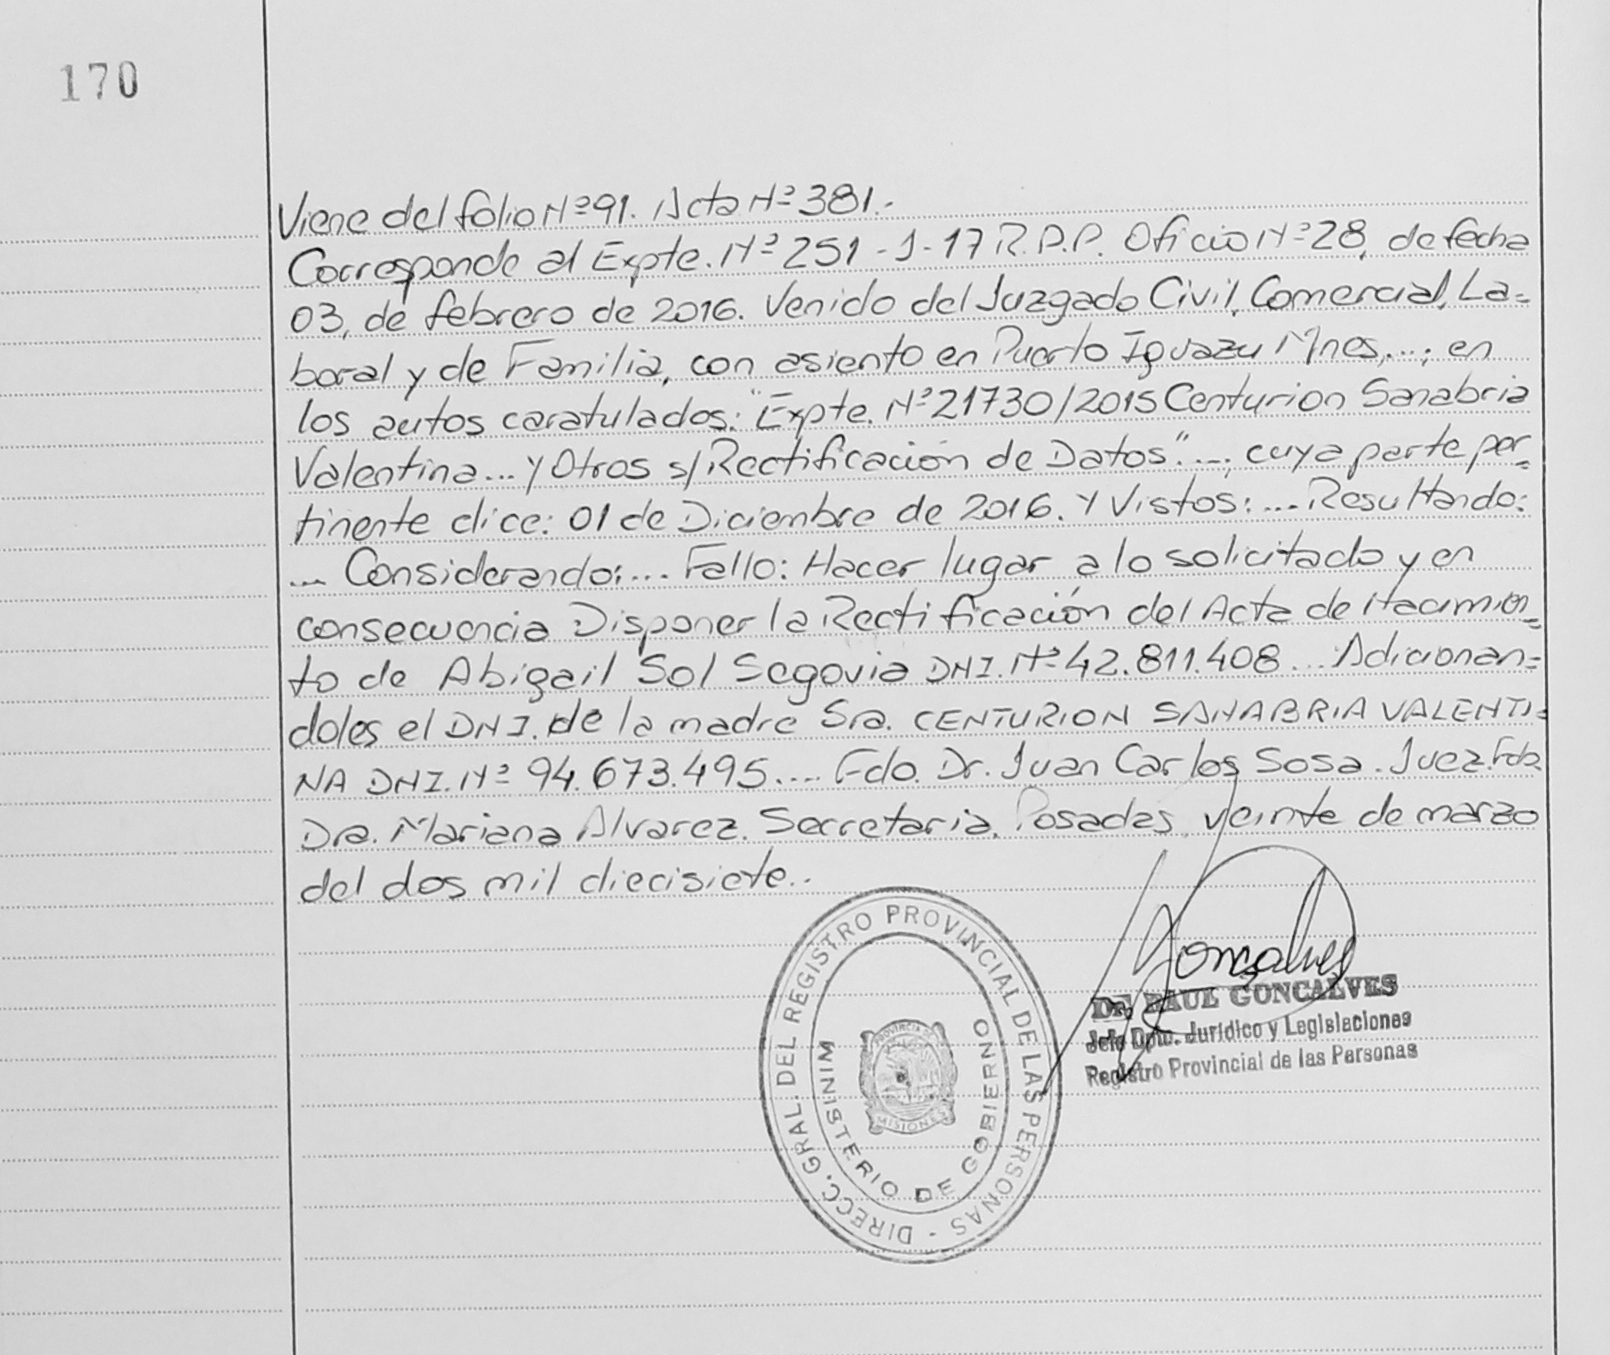 170
Viene del folio Nº 91. Acta Nº 381.-
Corresponde al Expte. Nº 251 - J - 17 R.P.P. Oficio Nº 28, de fecha
03, de febrero de 2016. Venido del Juzgado Civil, Comercial, La=
boral y de Familia, con asiento en Puerto Iguazu Mnes,...; en
los autos caratulados: "Expte. Nº 21730/2015 Centurion Sanabria
Valentina... y Otros s/Rectificación de Datos"...; cuya parte per=
tinente dice: 01 de Diciembre de 2016. Y Vistos:... Resultando:
... Considerando:... Fallo: Hacer lugar a lo solicitado y en
consecuencia Disponer la Rectificación del Acta de Nacimien=
to de Abigail Sol Segovia DNI. Nº 42.811.408... Adicionan=
doles el DNI. de la madre Sra. CENTURION SANABRIA VALENTI=
NA DNI. Nº 94.673.495.... Fdo. Dr. Juan Carlos Sosa. Juez. Fdo.
Dra. Mariana Alvarez. Secretaria. Posadas, veinte de marzo
del dos mil diecisiete..
DIRECC. GRAL. DEL REGISTRO PROVINCIAL DE LAS PERSONAS -
MINISTERIO DE GOBIERNO
PROVINCIA DE
MISIONES
Goncalves
Dr. RAUL GONCALVES
Jefe Dpto. Jurídico y Legislaciones
Registro Provincial de las Personas